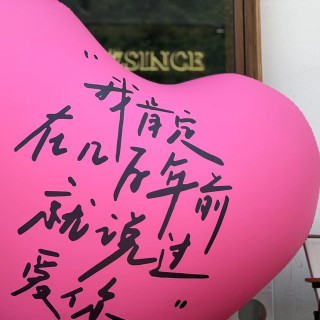 SINCE
"我肯定
在几百年前
就说过
爱你"